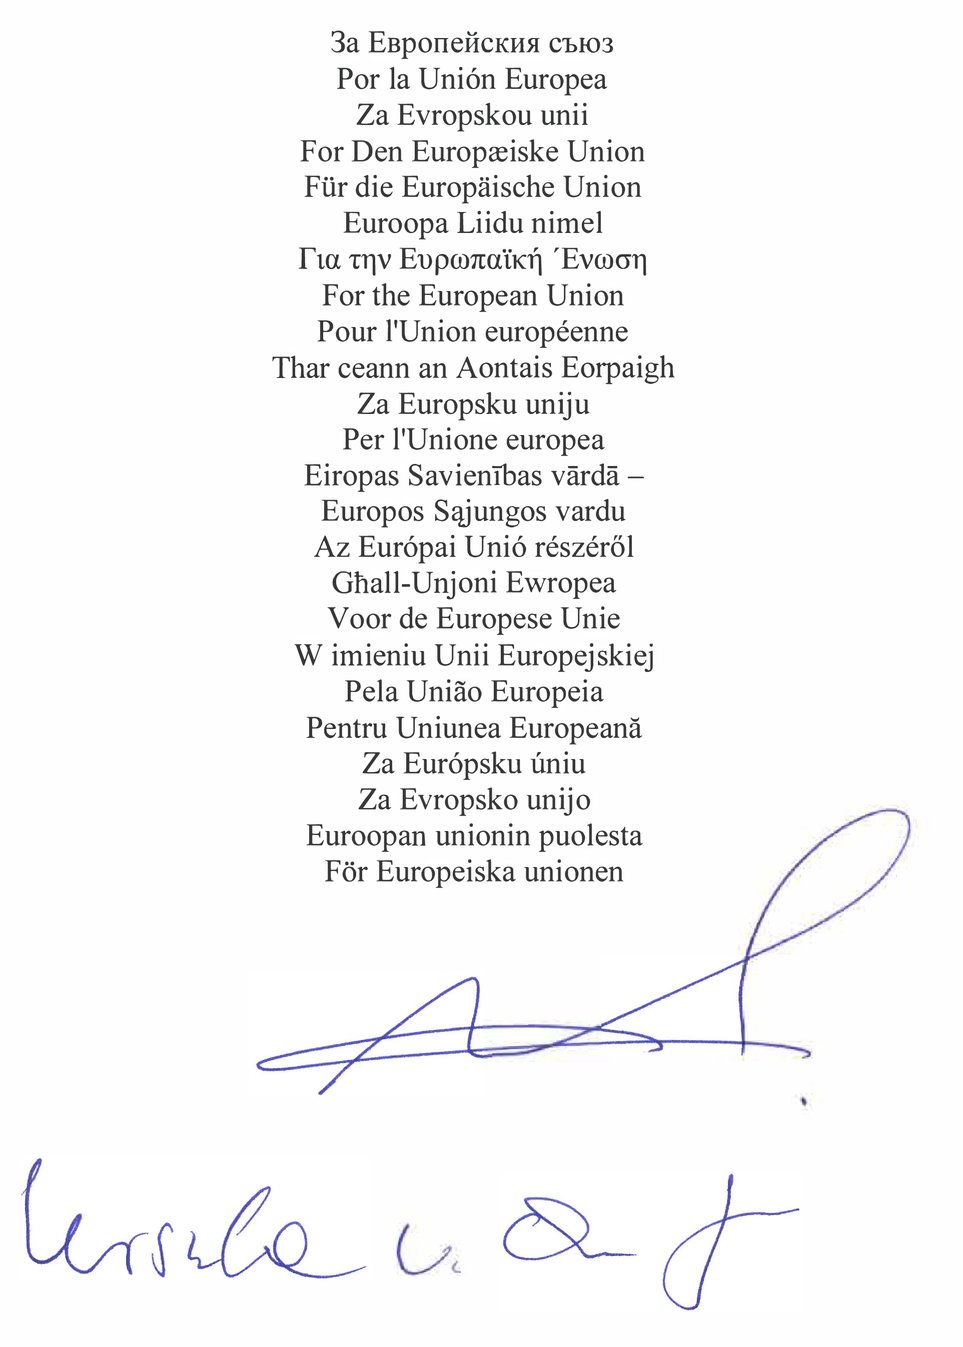 За Европейския съюз
Por la Unión Europea
Za Evropskou unii
For Den Europæiske Union
Für die Europäische Union
Euroopa Liidu nimel
Για την Ευρωπαϊκή ΄Ενωση
For the European Union
Pour l'Union européenne
Thar ceann an Aontais Eorpaigh
Za Europsku uniju
Per l'Unione europea
Eiropas Savienības vārdā –
Europos Sąjungos vardu
Az Európai Unió részéről
Għall-Unjoni Ewropea
Voor de Europese Unie
W imieniu Unii Europejskiej
Pela União Europeia
Pentru Uniunea Europeană
Za Európsku úniu
Za Evropsko unijo
Euroopan unionin puolesta
För Europeiska unionen
Ursula